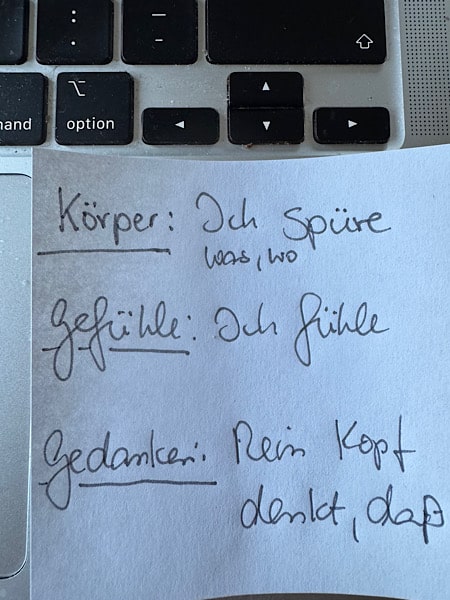 :
.
—
-
mand
option
Körper: Ich spüre
was, wo
Gefühle: Ich fühle
Gedanken: Mein Kopf
denkt, daß